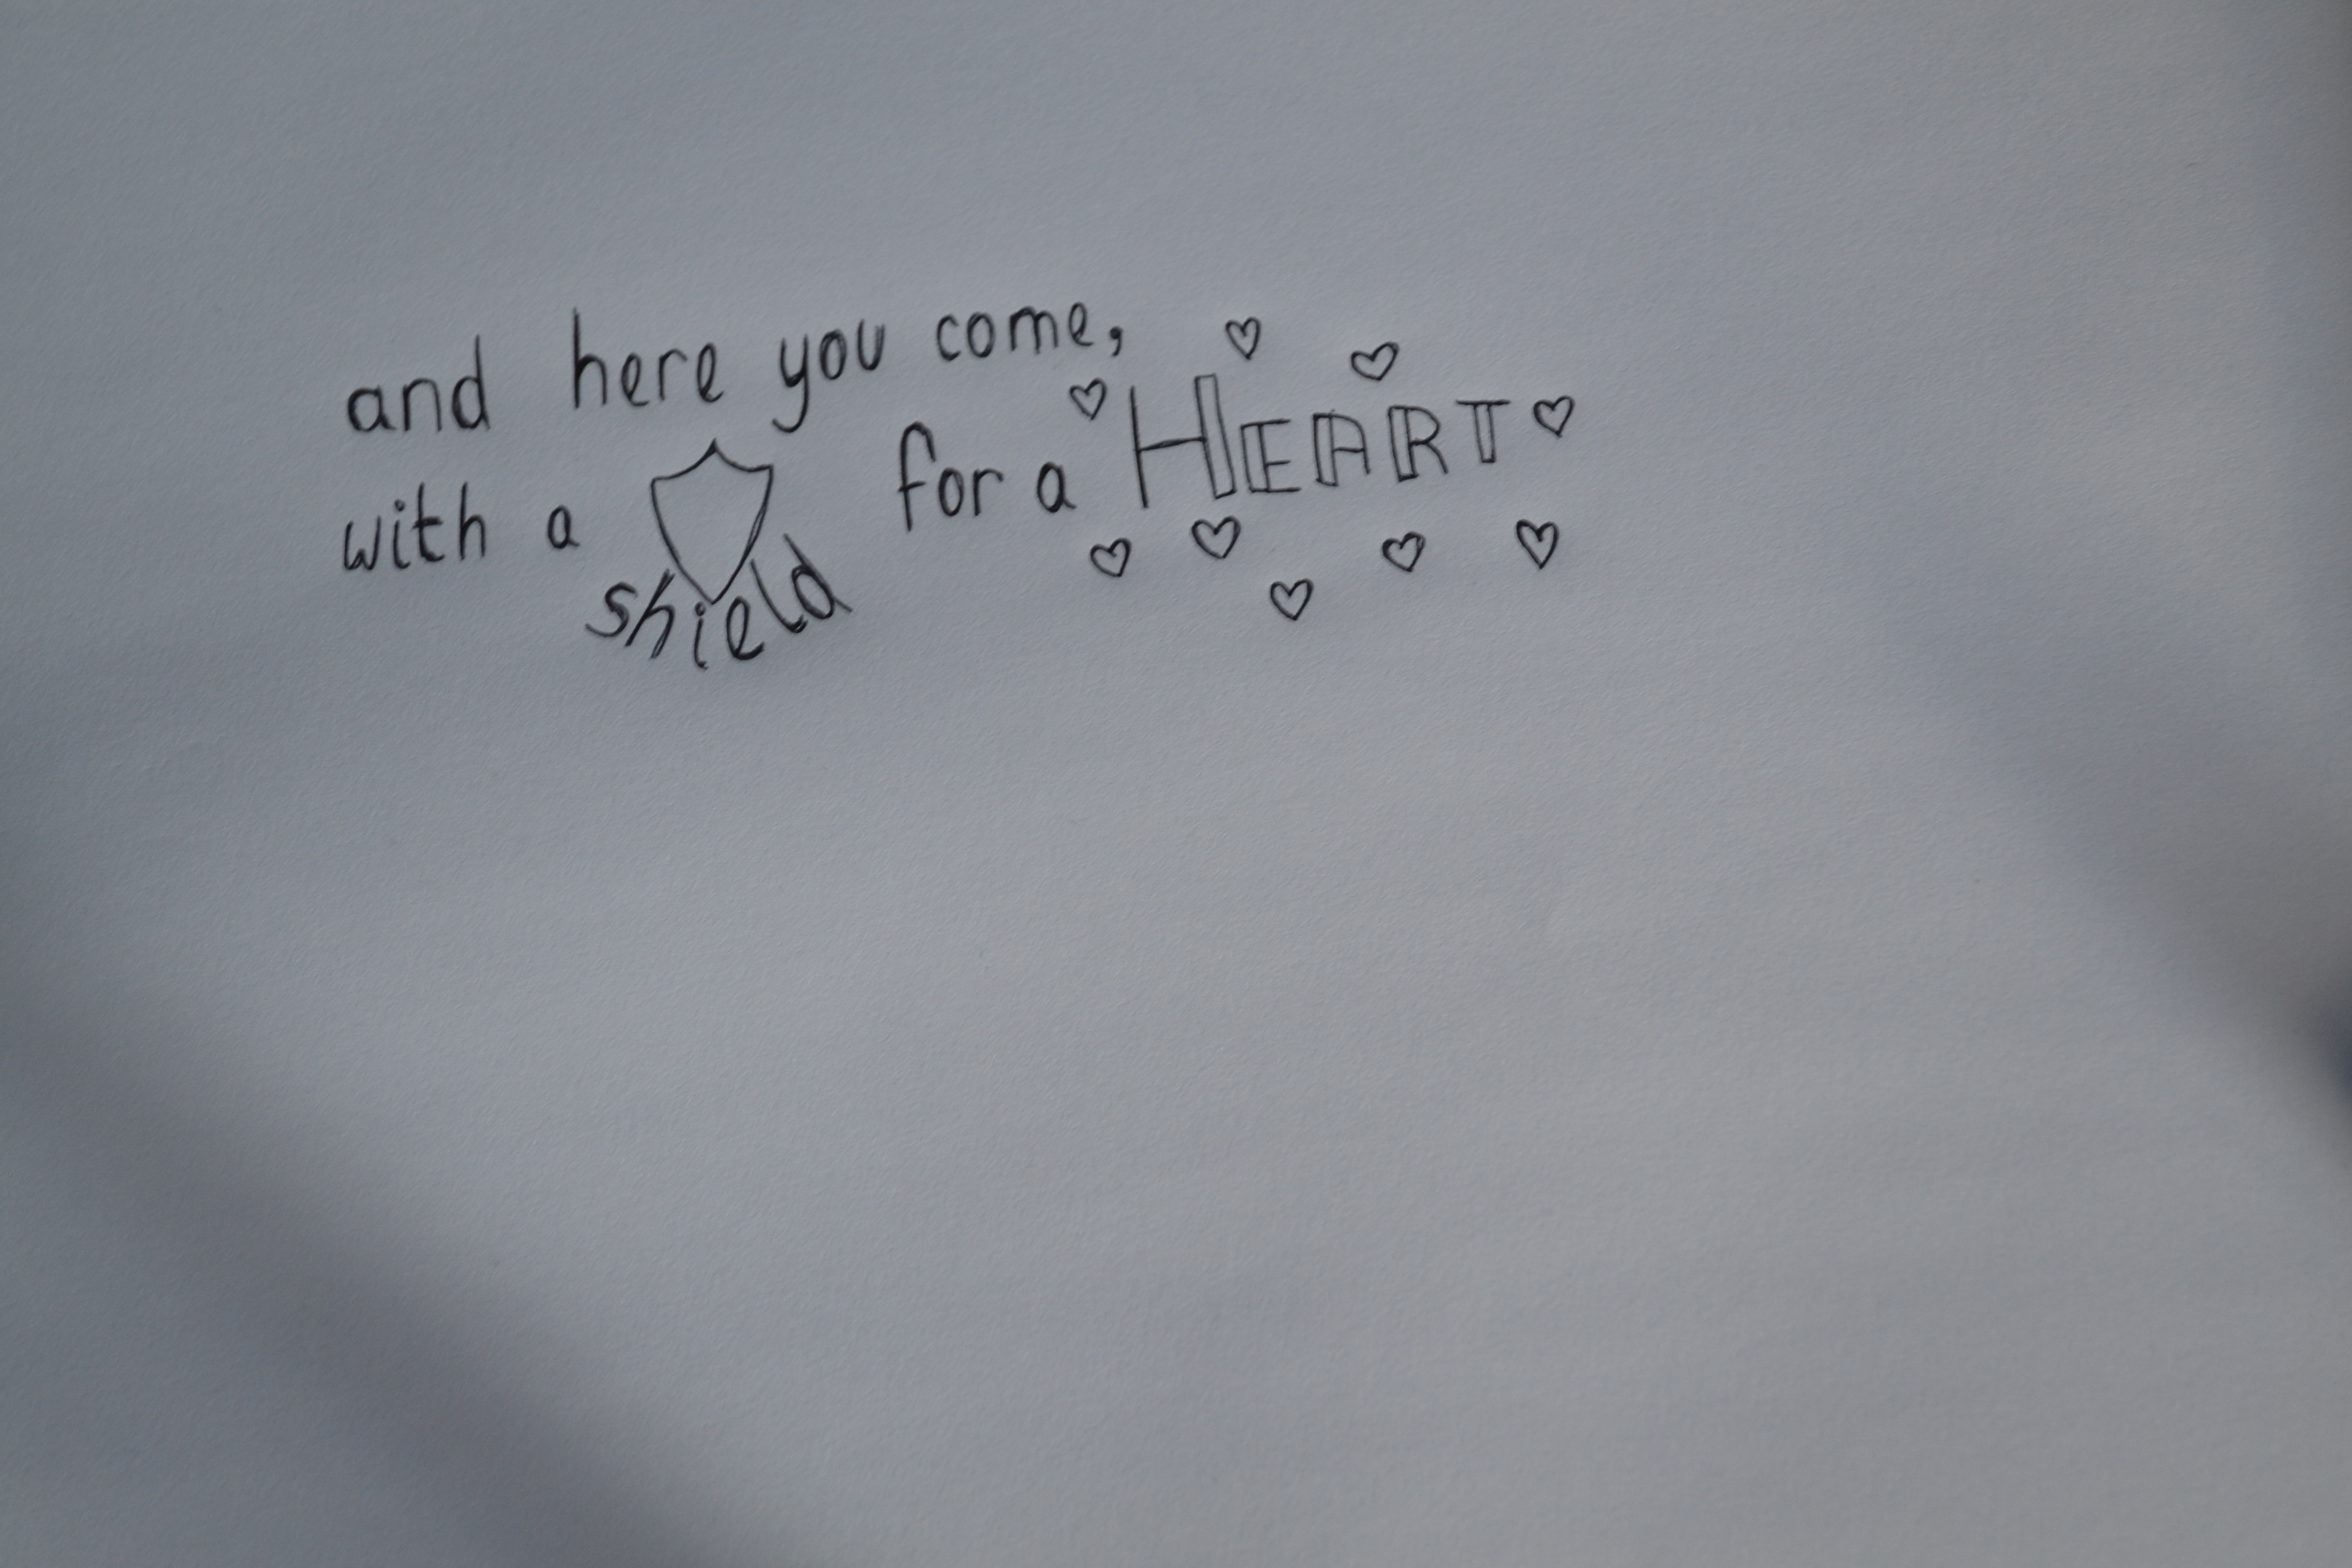 and here you come,
with a shield for a HEART